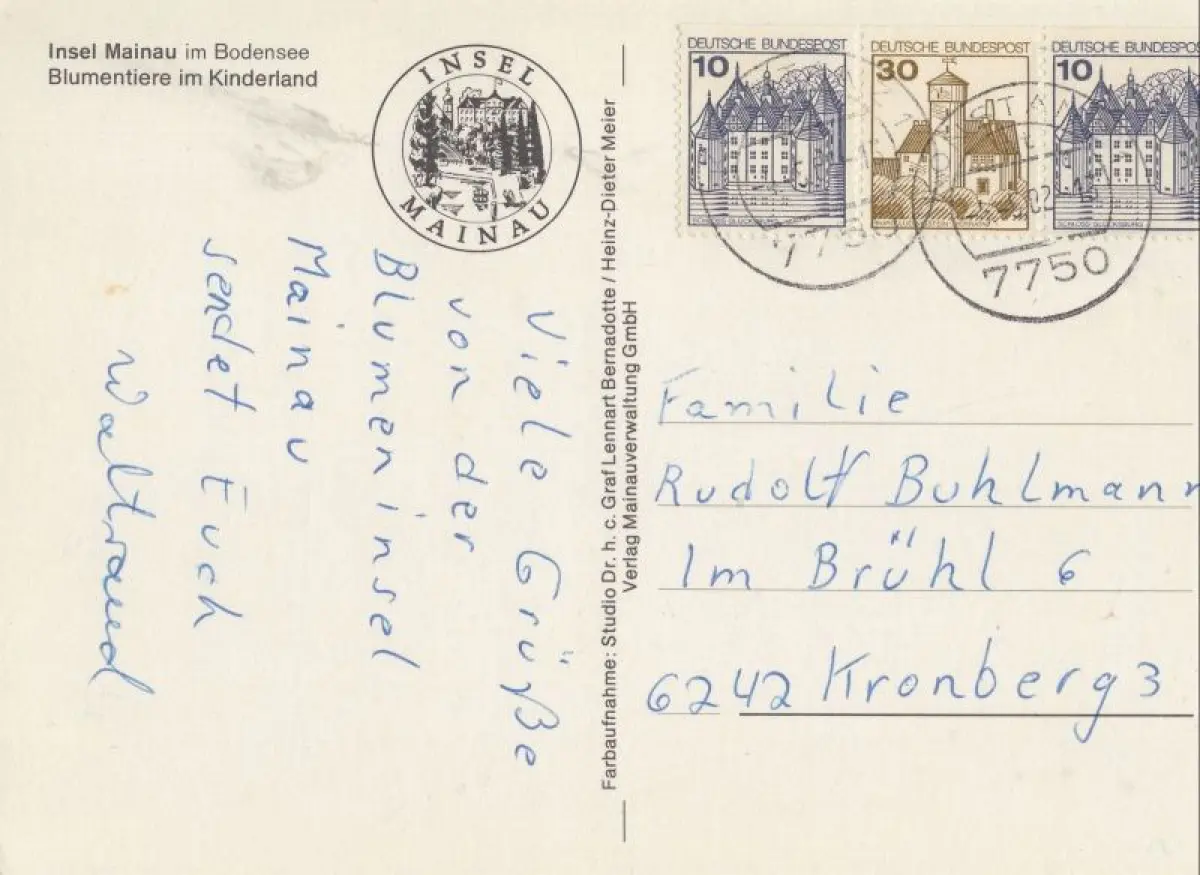 Insel Mainau im Bodensee
Blumentiere im Kinderland
INSEL
MAINAU
Viele Grüße
von der
Blumeninsel
Mainau
sendet Euch
Waltraud
Farbaufnahme: Studio Dr. h. c. Graf Lennart Bernadotte / Heinz-Dieter Meier
Verlag Mainauverwaltung GmbH
DEUTSCHE BUNDESPOST
10
SCHLOSS GLÜCKSBURG
DEUTSCHE BUNDESPOST
30
DEUTSCHE BUNDESPOS
10
SCHLOSS GLÜCKSBURG
7750
7750
Familie
Rudolf Buhlmann
Im Brühl 6
6242 Kronberg 3